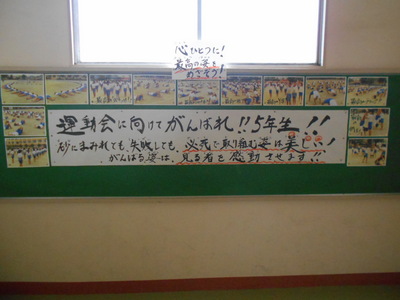 心ひとつに!
最高の姿を
めざそう!
運動会に向けてがんばれ!!5年生!!
砂にまみれても、失敗しても、必死に取り組む姿は美しい!
がんばる姿は、見る者を感動させます!!